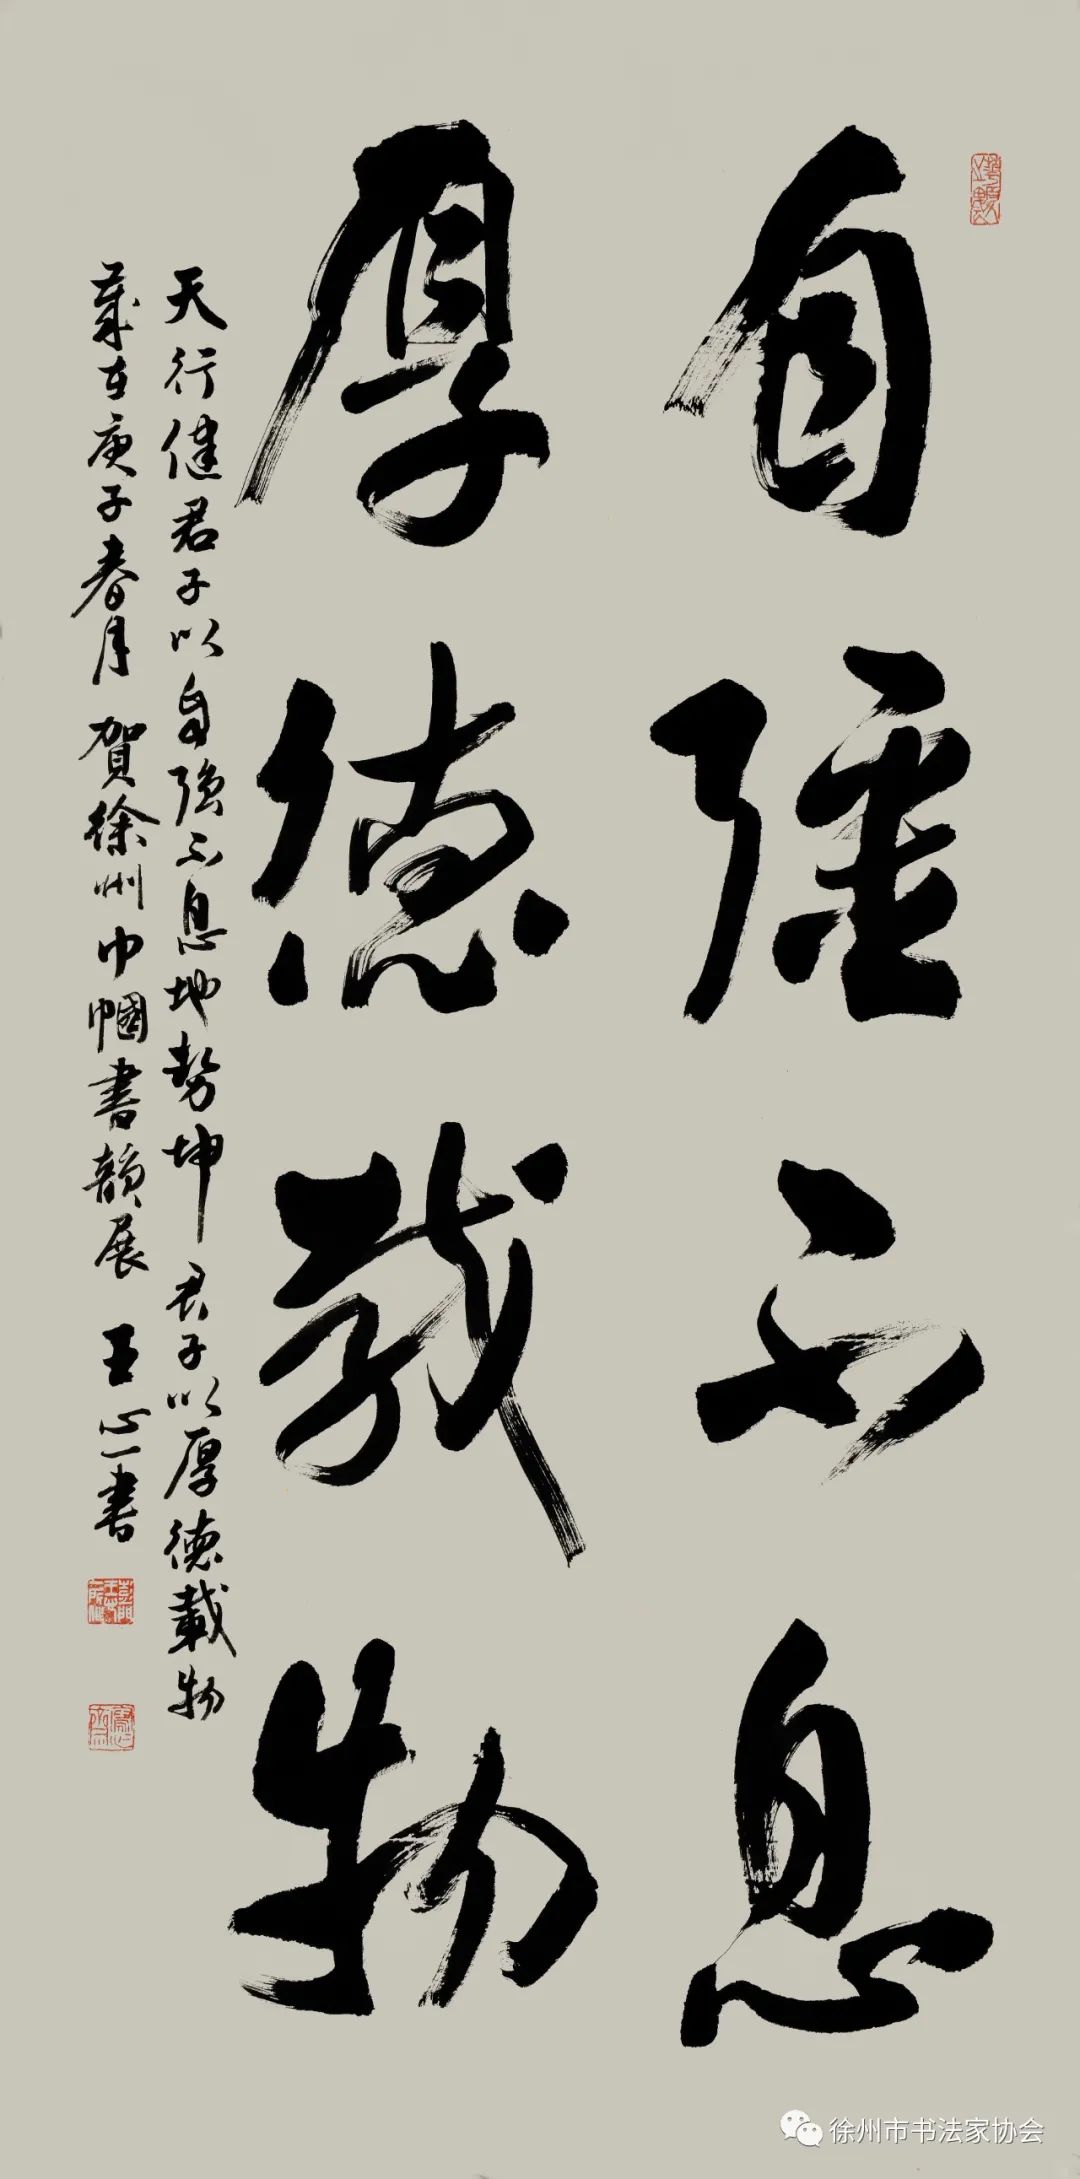 自強不息
厚德載物
天行健君子以自强不息地勢坤君子以厚德載物
歲在庚子春月賀徐州巾幗書韻展王心一書
徐州市书法家协会